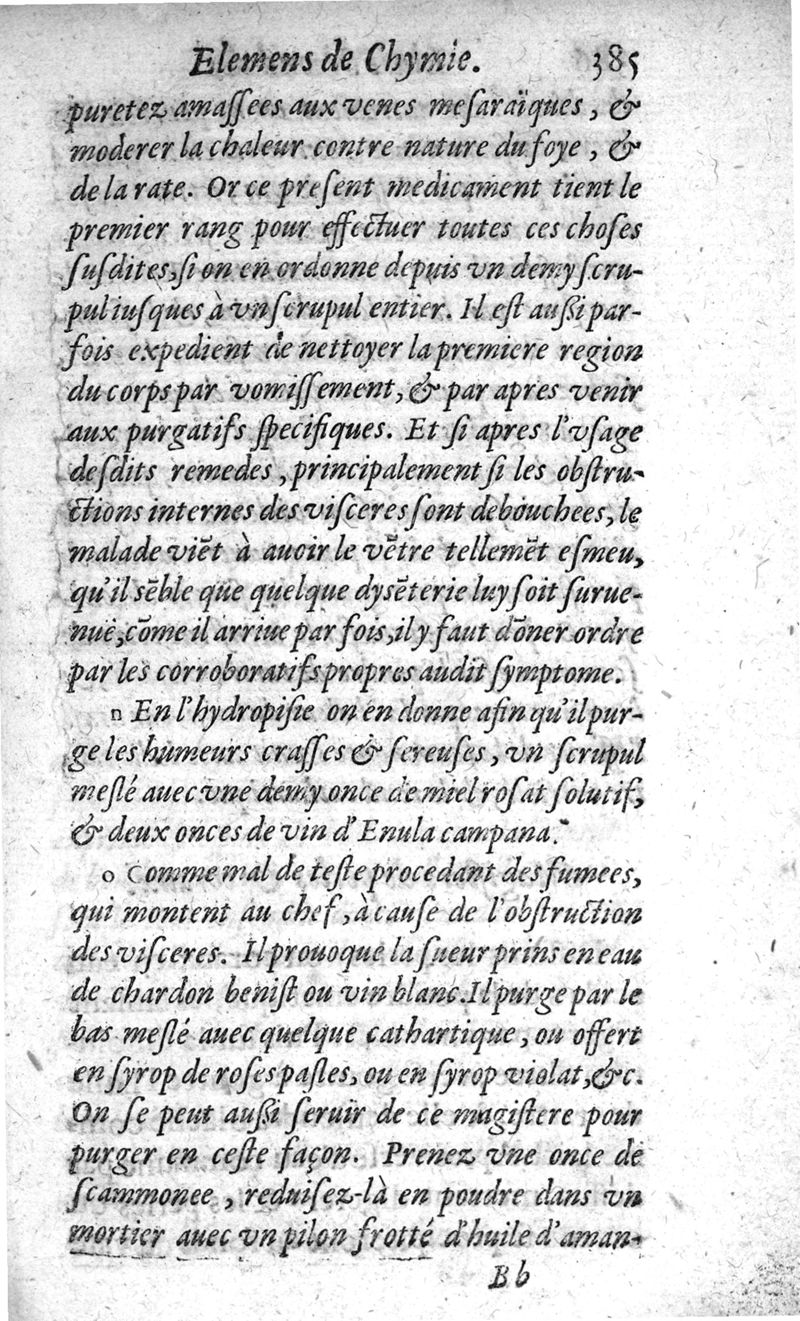 Elemens de Chymie. 385
puretez amaſſees aux venes meſaraïques, &
moderer la chaleur contre nature du foye, &
de la rate. Or ce preſent medicament tient le
premier rang pour effectuer toutes ces choſes
ſuſdites, ſi on en ordonne depuis vn demy ſcru-
pul iuſques à vn ſcrupul entier. Il eſt außi par-
fois expedient de nettoyer la premiere region
du corps par vomiſſement, & par apres venir
aux purgatifs ſpecifiques. Et ſi apres l'vſage
deſdits remedes, principalement ſi les obſtru-
ctions internes des viſceres ſont debouchees, le
malade viẽt à auoir le vẽtre tellemẽt eſmeu,
qu'il sẽble que quelque dyſẽterie luy ſoit ſurue-
nuë, cõme il arriue par fois, il y faut dõner ordre
par les corroboratifs propres audit ſymptome.
n En l'hydropiſie on en donne afin qu'il pur-
ge les humeurs craſſes & ſereuſes, vn ſcrupul
meſlé auec vne demy once de miel roſat ſolutif,
& deux onces de vin d'Enula campana.
o Comme mal de teſte procedant des fumees,
qui montent au chef, à cauſe de l'obſtruction
des viſceres. Il prouoque la ſueur prins en eau
de chardon beniſt ou vin blanc. Il purge par le
bas meſlé auec quelque cathartique, ou offert
en ſyrop de roſes paſles, ou en ſyrop violat, &c.
On ſe peut außi ſeruir de ce magiſtere pour
purger en ceſte façon. Prenez vne once de
ſcammonee, reduiſez-là en poudre dans vn
mortier auec vn pilon frotté d'huile d'aman-
Bb